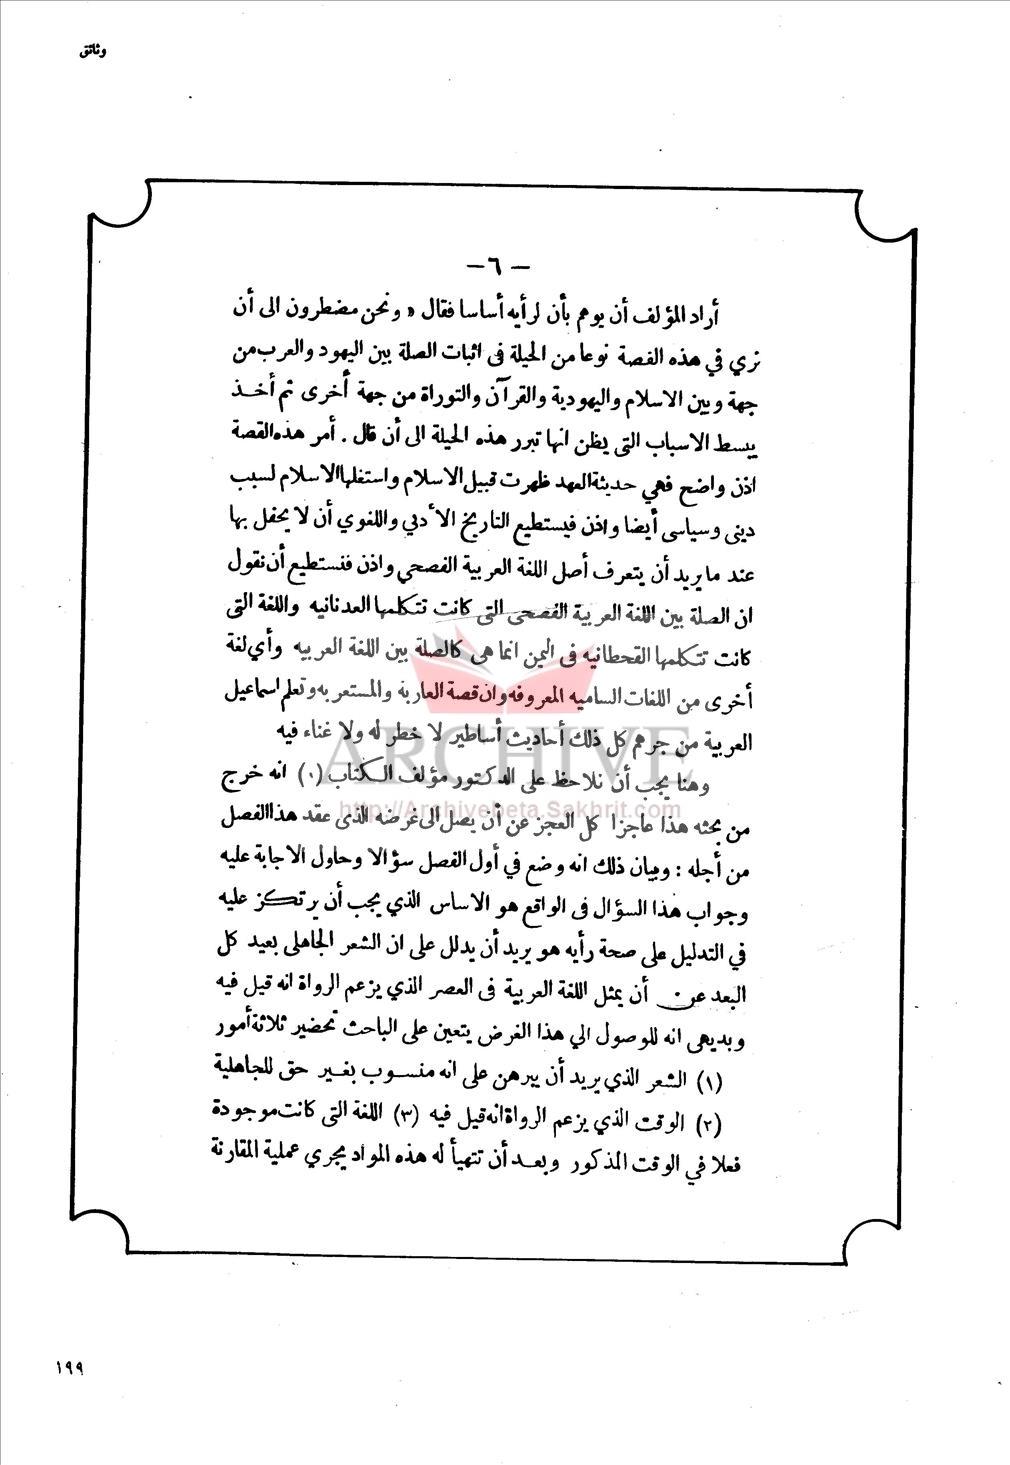 وثائق
— ٦ —
أراد المؤلف أن يوهم بأن لرأيه أساسا فقال « ونحن مضطرون الى أن
نري في هذه القصة نوعا من الحيلة فى اثبات الصلة بين اليهود والعرب من
جهة وبين الاسلام واليهودية والقرآن والتوراة من جهة أخرى ثم أخذ
يبسط الاسباب التى يظن انها تبرر هذه الحيلة الى أن قال . أمر هذه القصة
اذن واضح فهي حديثة العهد ظهرت قبيل الاسلام واستغلها الاسلام لسبب
دينى وسياسى أيضا واذن فيستطيع التاريخ الأدبي واللغوي أن لا يحفل بها
عند ما يريد أن يتعرف أصل اللغة العربية الفصحي واذن فنستطيع أن نقول
ان الصلة بين اللغة العربية الفصحى التى كانت تتكلمها العدنانيه واللغة التى
كانت تتكلمها القحطانيه فى اليمن انما هى كالصلة بين اللغة العربيه وأي لغة
أخرى من اللغات الساميه المعروفه وان قصة العاربة والمستعربه وتعلم اسماعيل
العربية من جرهم كل ذلك أحاديث أساطير لا خطر له ولا غناء فيه
وهنا يجب أن نلاحظ على الدكتور مؤلف الكتاب (٠) انه خرج
من بحثه هذا عاجزا كل العجز عن أن يصل الى غرضه الذى عقد هذا الفصل
من أجله : وبيان ذلك انه وضع في أول الفصل سؤالا وحاول الاجابة عليه
وجواب هذا السؤال فى الواقع هو الاساس الذي يجب أن يرتكز عليه
في التدليل على صحة رأيه هو يريد أن يدلل على ان الشعر الجاهلى بعيد كل
البعد عن أن يمثل اللغة العربية فى العصر الذي يزعم الرواة انه قيل فيه
وبديهى انه للوصول الي هذا الغرض يتعين على الباحث تحضير ثلاثة أمور
(١) الشعر الذي يريد أن يبرهن على انه منسوب بغير حق للجاهلية
(٢) الوقت الذي يزعم الرواة انه قيل فيه (٣) اللغة التى كانت موجودة
فعلا في الوقت المذكور وبعد أن تتهيأ له هذه المواد يجري عملية المقارنة
ARCHIVE
http://Archivebeta.Sakhrit.com
١٩٩